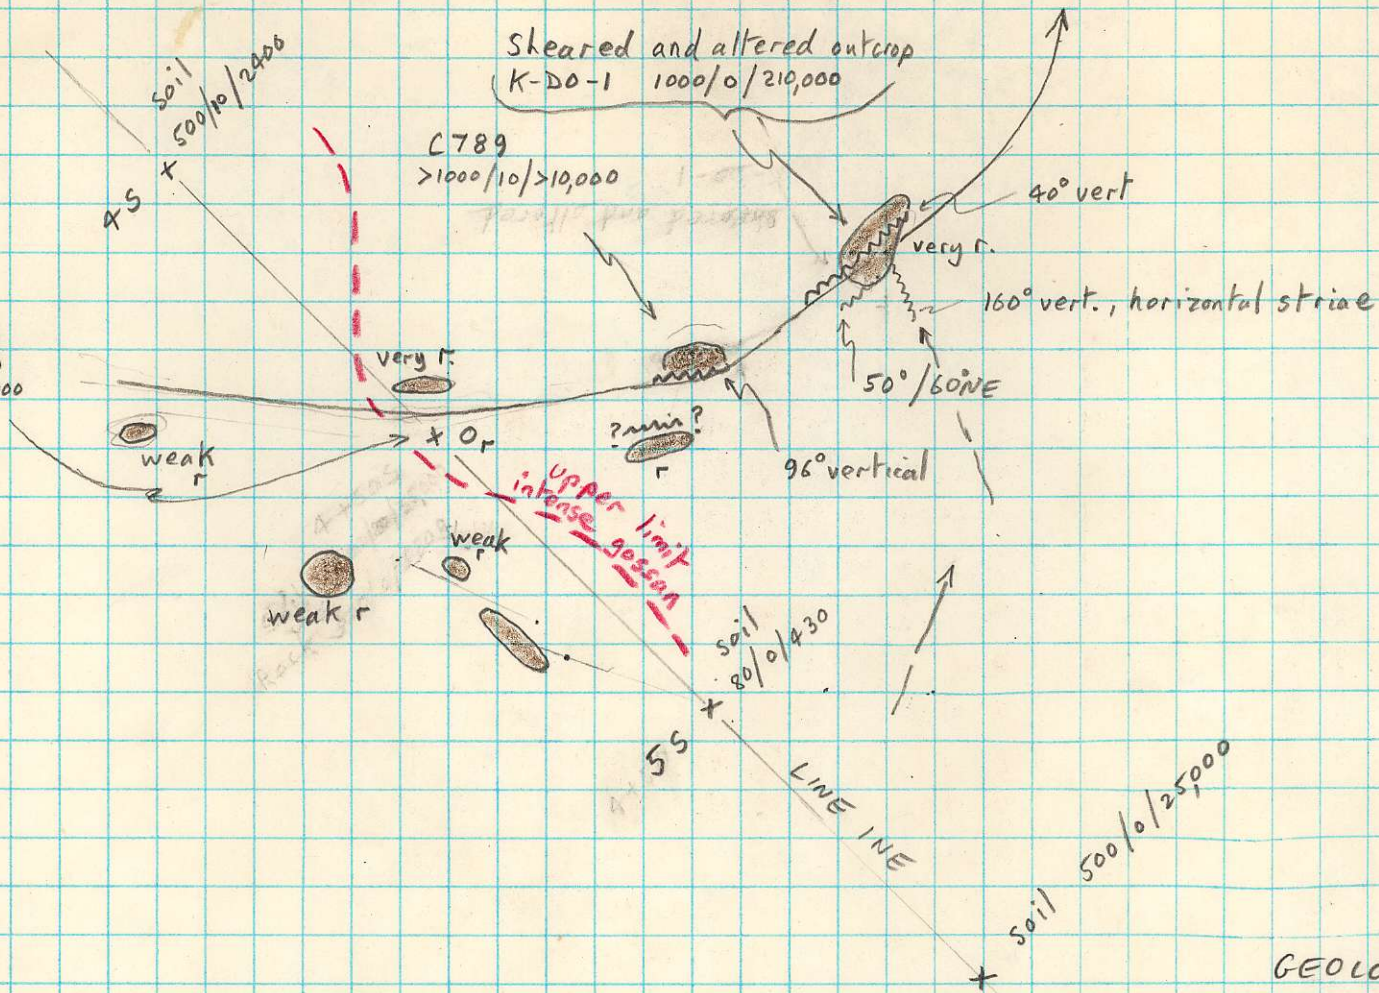 Sheared and altered outcrop
K-DO-1 1000/0/210,000
soil
500/10/2400
4S
C789
>1000/10/>10,000
40° vert
very r.
160° vert., horizontal striae
very r.
50°/60°NE
00
weak
r
Or
?
?
r
96° vertical
upper limit
intense gossan
weak
r
weak r
soil
80/0/430
5S
LINE 1NE
soil 500/0/25,000
GEOLO